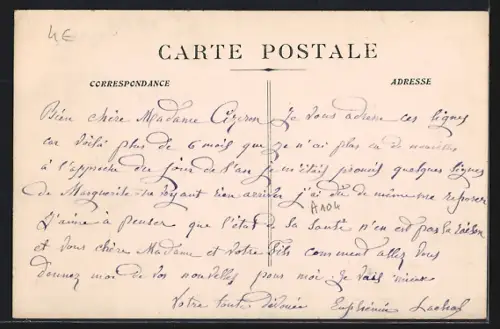 4€
CARTE POSTALE
CORRESPONDANCE
ADRESSE
Bien chère Madame je vous adresse ces lignes
car voilà plus de 6 mois que je n'ai plus eu de nouvelles
à l'approche du jour de l'an je m'étais promis quelques lignes
de Marguerite ne voyant rien arriver j'ai dû de même me reposer
A104
J'aime à penser que l'état de la santé n'en est pas la raison
et vous chère Madame et votre fils comment allez vous
donnez moi de vos nouvelles pour moi je vais mieux
Votre toute dévouée Euphémie